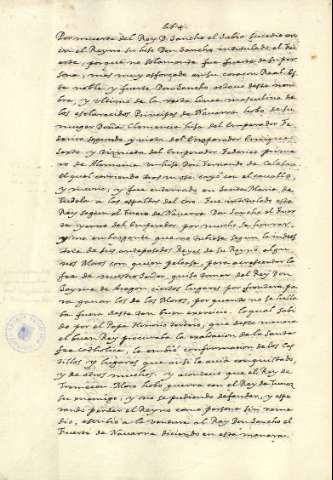 Por muerte del Rey D. Sancho el Sabio sucedio en
en el Reyno su hijo Don Sancho intitulado el Fu
erte, porque no solamente fue fuerte de su per
sona, mas muy esforzado en su corazon Real. Es
te noble y fuerte Don Sancho octavo deste nom
bre, y ultimo de la recta linea masculina de
los esclarecidos Principes de Navarra hobo de su
muger Doña Clemencia hija del Emperador Fe
derico segundo y nieta del Emperador Enrique
Sexto y Bisnieta del Emperador Federico prime
ro de Alemania un hijo Don Fernando de Calaho
el qual corriendo tras un oso, cayó con el cavallo
y murió, y fue enterrado en Santa Maria de
Tudela a las espaldas del coro. Fue intitulado este
Rey segun el Fuero de Navarra Don Sancho el Fuer
te, yerno del Emperador, por mucho le honrar,
y no embargante que no tubiese segun la indus
tria de sus antepasados Reyes de su Reyno algu
nos Moros con quien pelease, para acrescentar la
fee de nuestro Señor, quiso tomar del Rey Don
Jayme de Aragon ciertos lugares por frontera pa
ra ganar los de los Moros, por quanto no se halla
ba fuera deste tan buen exercicio. Lo qual sabi
do por el Papa Honorio tercero, que deste manera
el buen Rey procuraba la exaltacion de la Santa
fee Catholica, le embió confirmacion de los Cas
tillos y lugares que assi la avia conquistado,
y de otros muchos. Y aconteció que el Rey de
Tremecen Moro hobo guerra con el Rey de Tunez
su enemigo, y no se pudiendo defender, y espe
rando perder el Reyno como persona sin reme
dio, escribió a la ventura al Rey Don Sancho el
Fuerte de Navarra diciendo en esta manera.